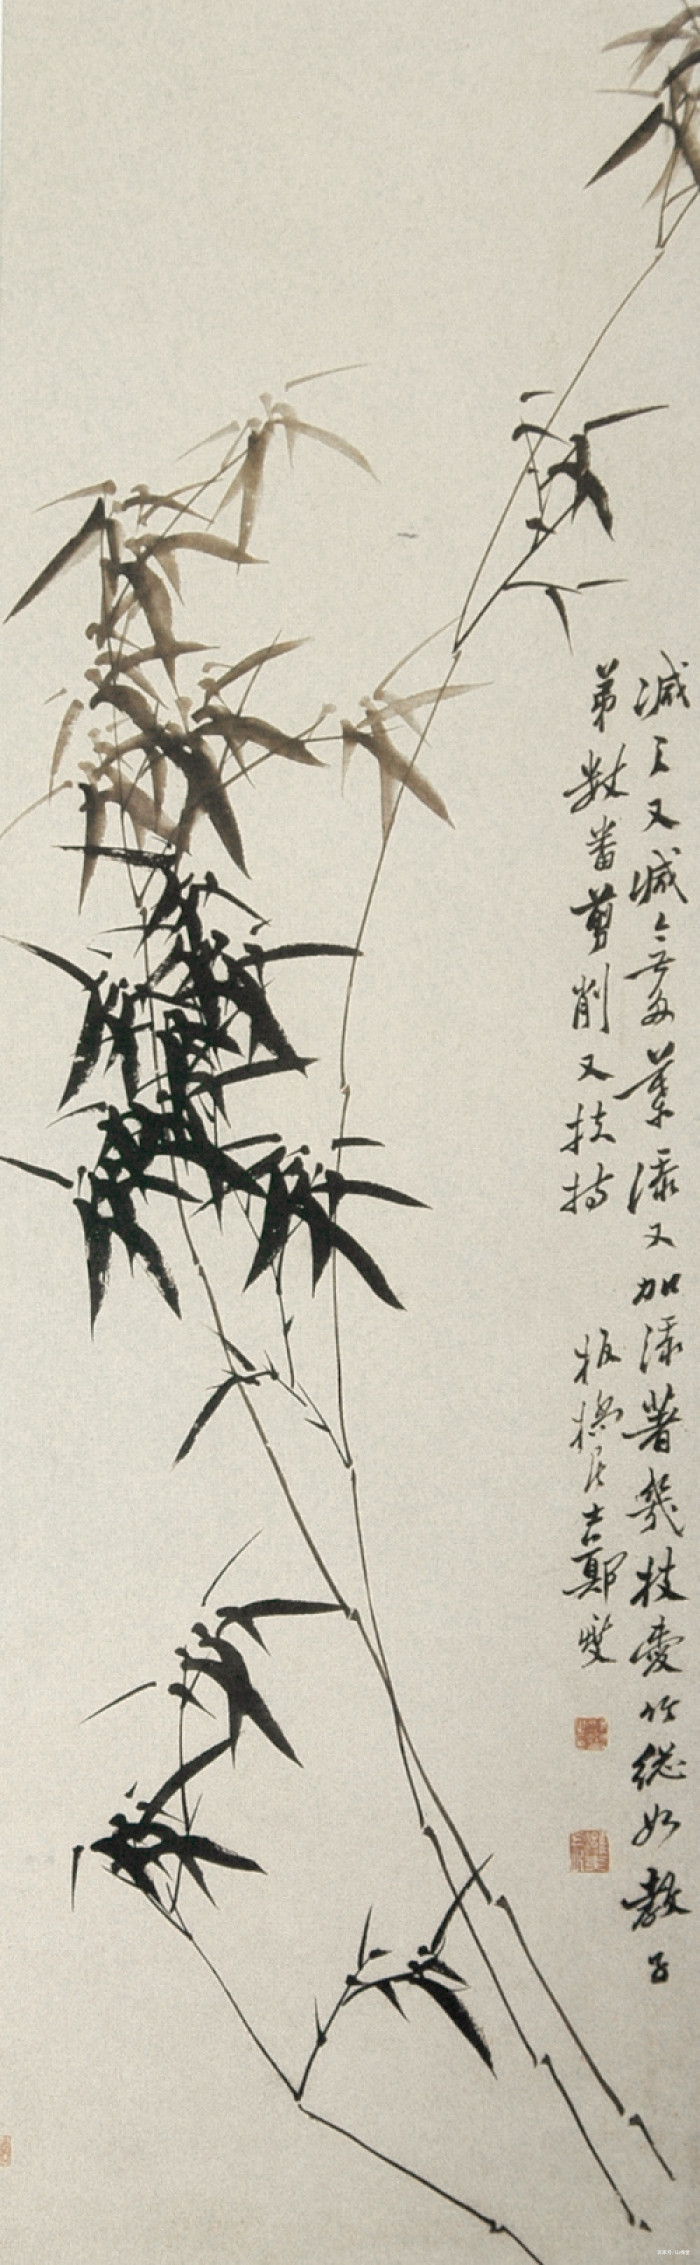 減之又減無多葉添又加添著幾枝愛竹總如教子
弟數番剪削又扶持
板橋居士鄭燮